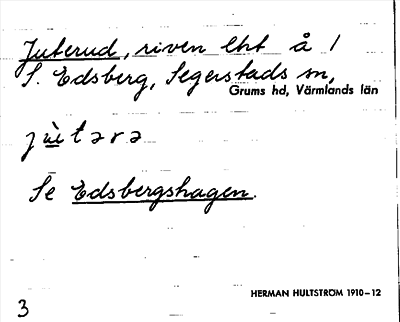 Juterud, riven lht å /
S. Edsberg, Segerstads sn,
Grums hd, Värmlands län
jùtərə
Se Edsbergshagen.
HERMAN HULTSTRÖM 1910–12
3